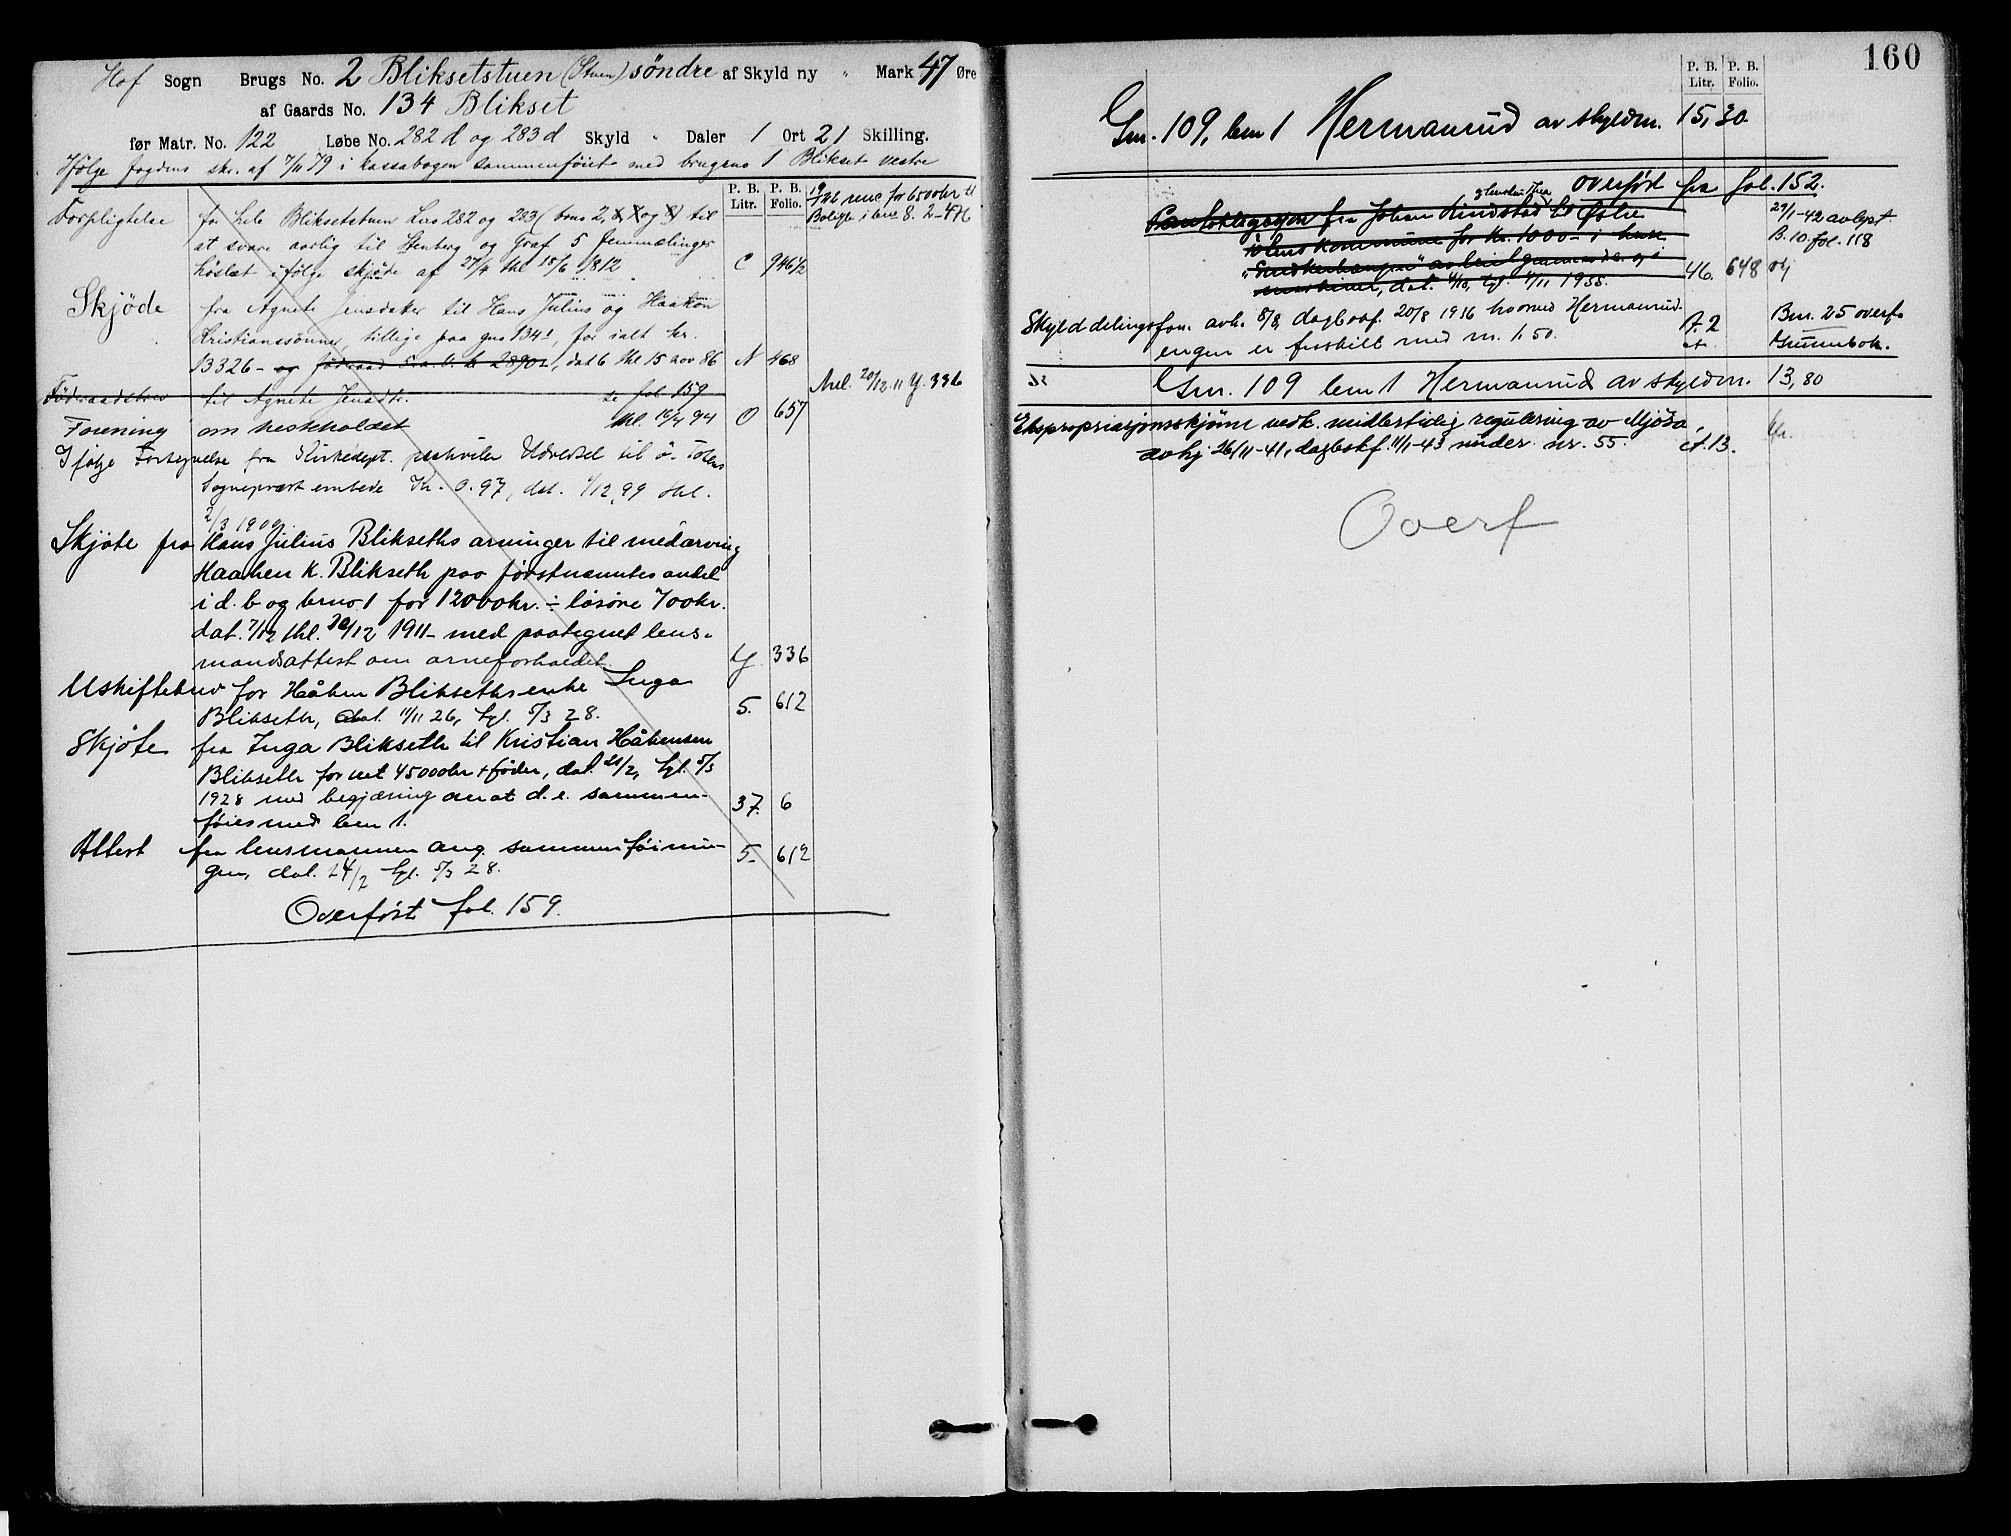 Hof Sogn Brugs No. 2 Bliksetstuen (Stuen) söndre af Skyld ny " Mark 47 Øre
af Gaards No. 134 Blikset
før Matr. No. 122 Løbe No. 282 d og 283 d Skyld " Daler 1 Ort 21 Skilling.
Ifölge fogdens skr. af 7/11 79 i kassabogen sammenföiet med brugsno 1 Blikset vestre
P. B. Litr. P. B. Folio.
Forpligtelse for hele Bliksetstuen Lno 282 og 283 ( bno 2, og ) til
at svare aarlig til Stenberg og Graf 5 femmælinger
höslæt ifölge skjöde af 27/4 thl 15/6 1812 C 946½
Skjöde fra Agnete Jensdater til Hans Julius og Haakon
Kristianssönner, tillige paa gno 134 1, for ialt kr.
13326 - og föderaad 5 aar v. kr 2890, dat 6 thl 15 nov 86 N 468
Föderaadsbrev til Agnete Jensdtr. se fol 159
Mel. 20/12 11 Y. 336
Forening om hesteholdet thl. 16/4 94 O 657
Ifölge Fortegnelse fra Kirkedept. paahviler Udredsel til ö. Totens
Sogneprest embede Kr. 0.97, dat. 1/12 99 thl.
2/3 1900.
Skjøte fra Hans Julius Blikseths arvinger til medarving
Haaken K. Blikseth paa førstnævntes andel
i d. b og brno 1 for 12000 kr. ÷ løsøre 700 kr.
dat. 7/12 thl. 20/12 1911 - med paategnet lens-
mandsattest om arveforholdet. Y 336
Uskiftebrev for Håken Blikseths enke Inga
Blikseth, dat. 11/11 26, tgl. 5/3 28. 5. 612
Skjøte fra Inga Blikseth til Kristian Håkensen
Blikseth for net 45000 kr + føder, dat. 21/2, tgl. 5/3
1928 med begjæring om at d. e. sammen-
føies med brn 1. 37. 6
Attest fra lensmannen ang. sammenføinin-
gen, dat. 24/2 tgl. 5/3 28. 5. 612
Overført fol. 159.
160
P. B. Litr. P. B. Folio.
Gnr. 109, bnr 1 Hermanrud av skyldm. 15,30
overført fra fol. 152.
Panteobligasjon fra Johan Lindstad til Østre
Totens kommune for Kr. 1000 - i huse
29/1-42 avlyst
B. 10. fol. 118
46. 648
Skylddelingsforr. avh. 8/8, dagbokf. 20/8 1936 hvorved Hermanrud-
engen er fraskilt med m. 1.50. A. 2 Bnr. 25 overf.
Grunnbok.
Gnr. 109 bnr 1 Hermanrud av skyldm. 13,80
Ekspropriasjonsskjønn vedk. midlertidig regulering av Mjøsa,
avhj. 26/11-41, dagbokf. 11/1-43 under nr. 55. A. 13.
Overf